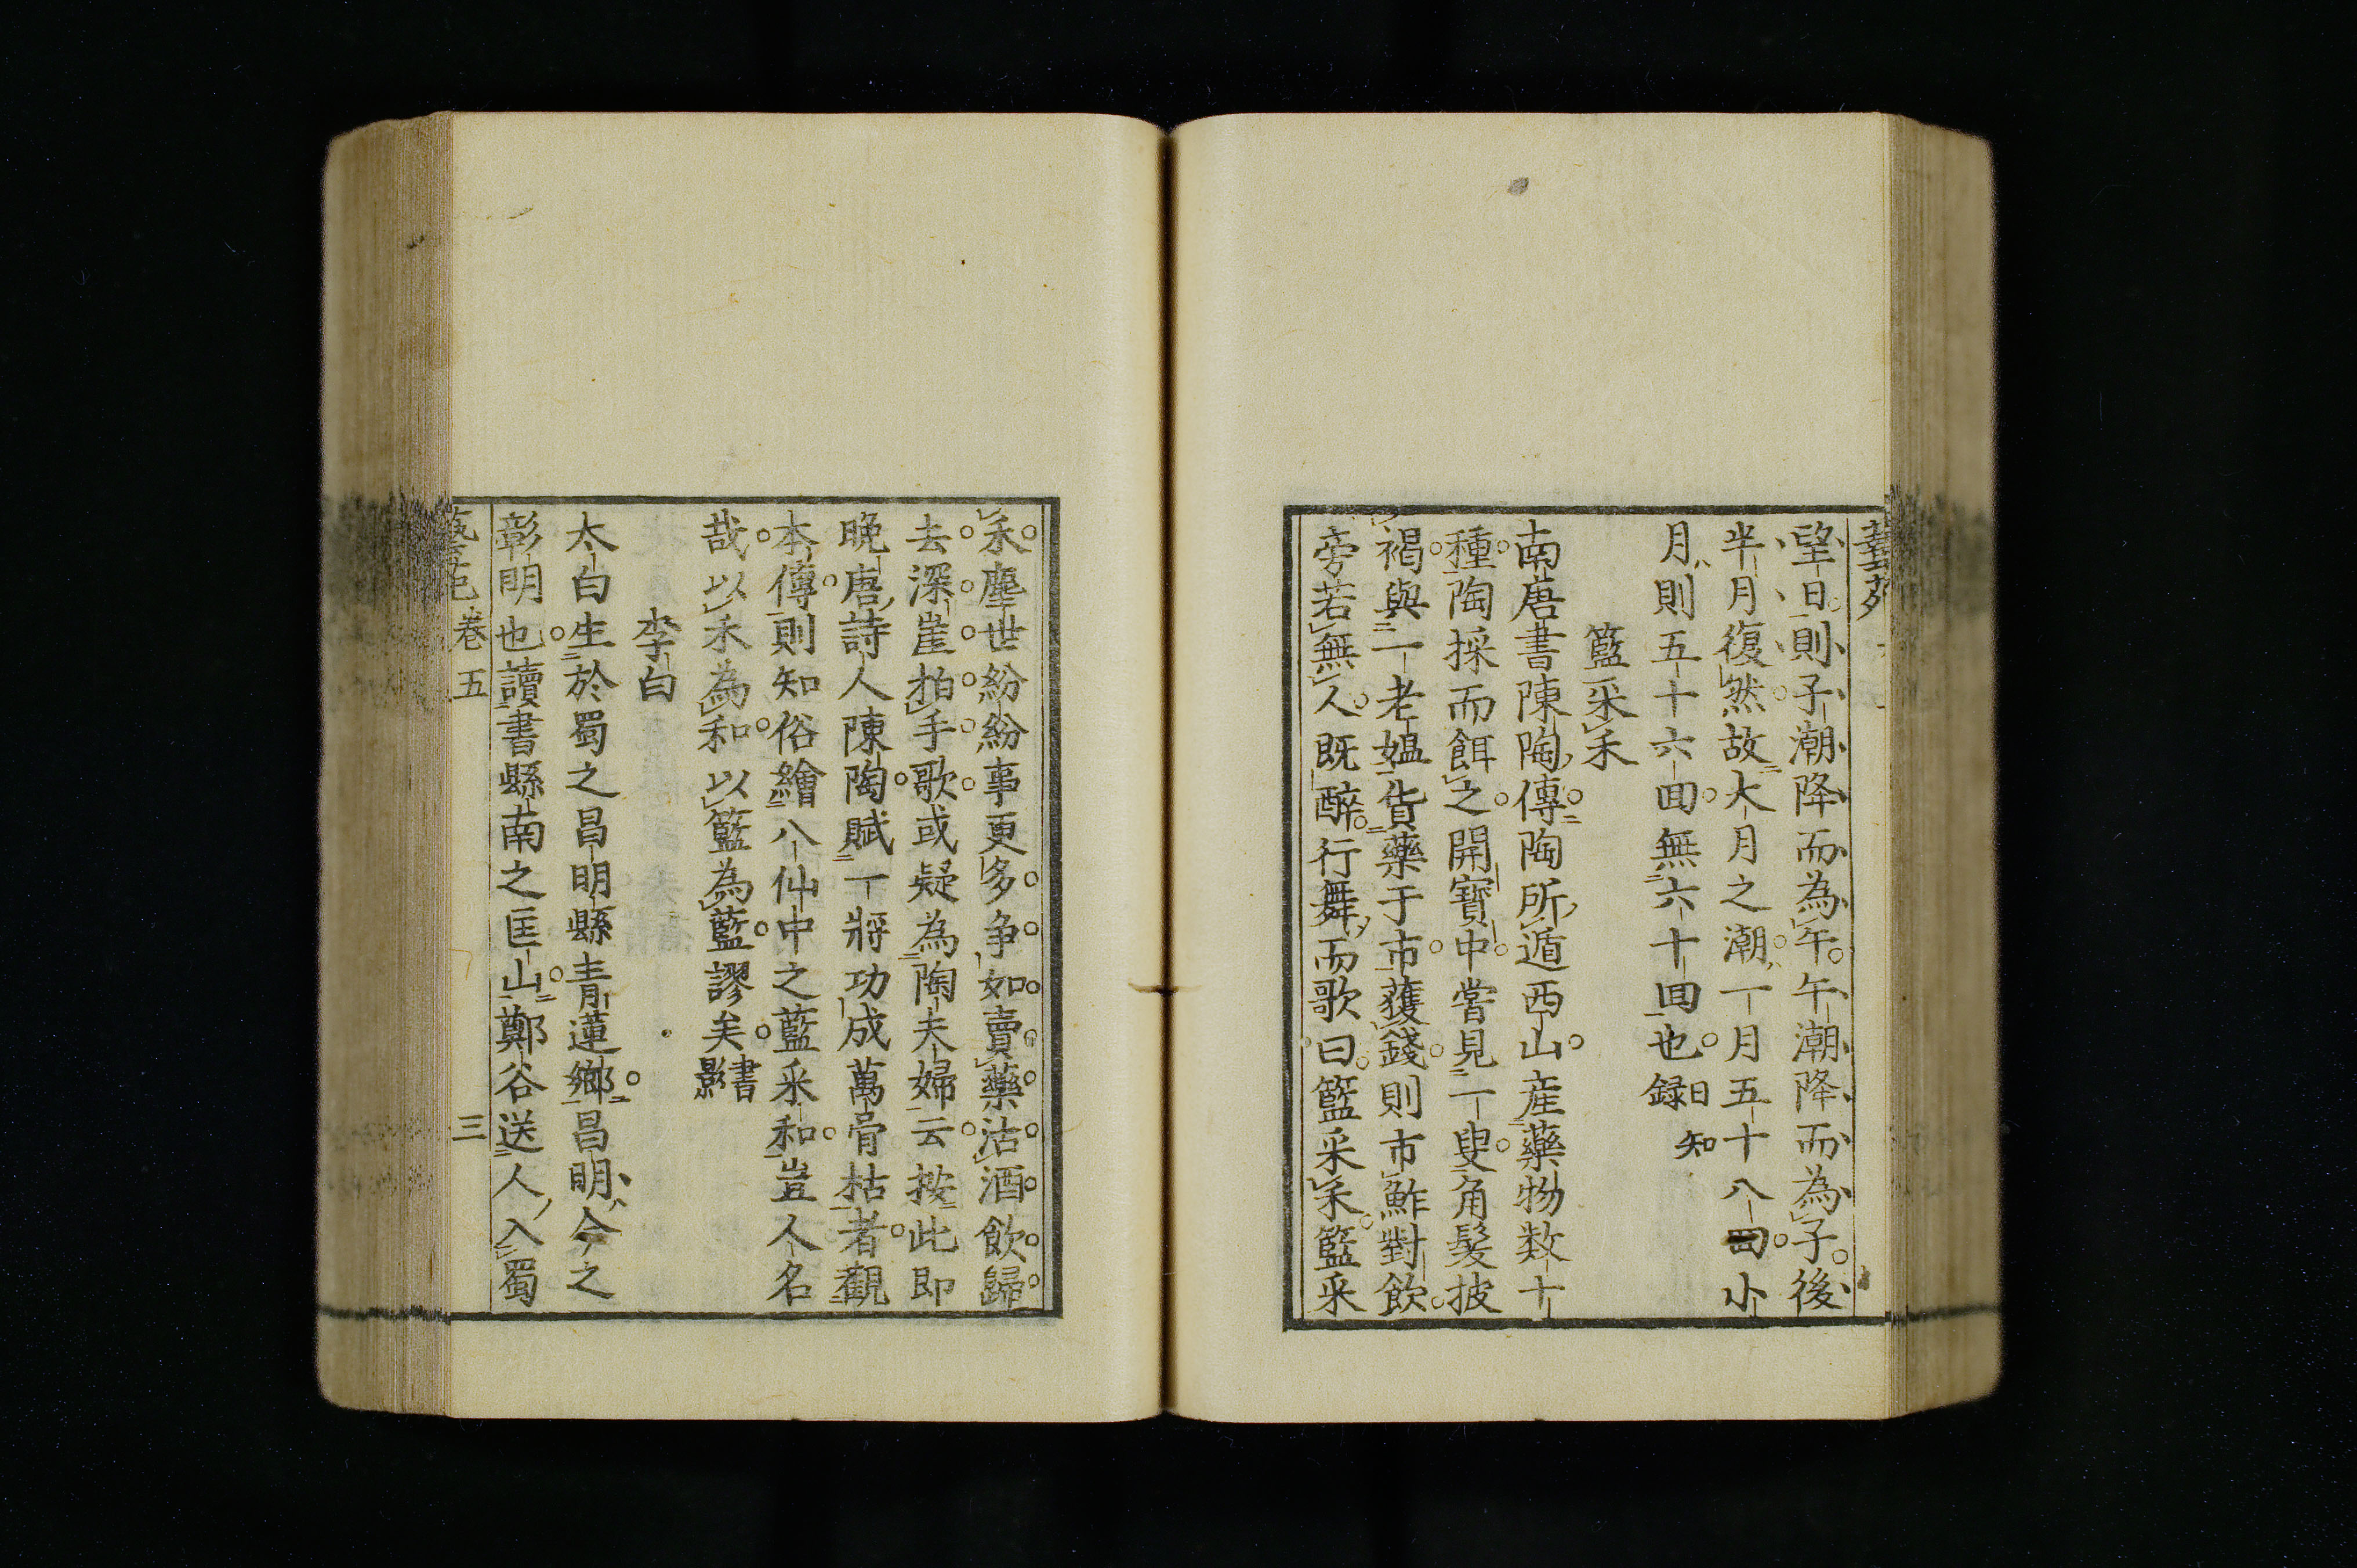 望日則子潮降而為午午潮降而為子後
半月復然故大月之潮一月五十八囬小
月則五十六囬無六十囬也日知録
籃采禾
南唐書陳陶傳陶所遁西山産藥物数十
種陶採而餌之開寶中嘗見一叟角髮披
褐與一老媪貨藥于市獲錢則市鮓對飲
旁若無人既醉行舞而歌曰籃采禾籃采
禾塵世紛紛事更多争如賣藥沽酒飲歸
去深崖拍手歌或疑為陶夫婦云按此即
晚唐詩人陳陶賦一將功成萬骨枯者觀
本傳則知俗繪八仙中之藍采和豈人名
哉以禾為和以籃為藍謬矣書影
李白
太白生於蜀之昌明縣青蓮鄉昌明今之
彰明也讀書縣南之匡山鄭谷送人入蜀
卷五 三